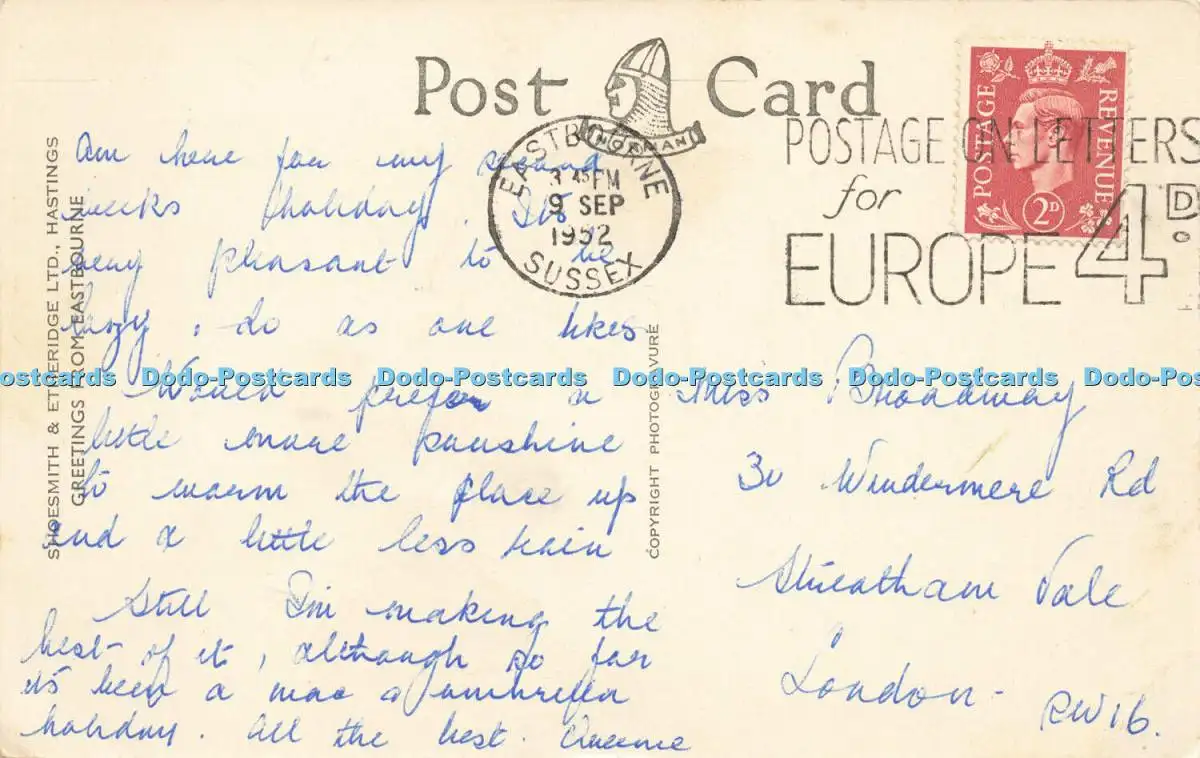 Post Card
NORMAN
EASTBOURNE
3 45 PM
9 SEP
1952
SUSSEX
POSTAGE ON LETTERS
for
EUROPE 4D.
POSTAGE REVENUE
2D
SHOESMITH & ETHERIDGE LTD., HASTINGS
GREETINGS FROM EASTBOURNE
COPYRIGHT PHOTOGRAVURE
Am here for my second
weeks holiday. Its
very pleasant to be
lazy & do as one likes
Would prefer a
little more sunshine
to warm the place up
and a little less rain
Still I'm making the
best of it, although so far
it's been a mac & umbrella
holiday. All the best.
Miss Broadway
30 Windermere Rd
Streatham Vale
London - SW16.
Dodo-Postcards Dodo-Postcards Dodo-Postcards Dodo-Postcards Dodo-Postcards Dodo-Postcards